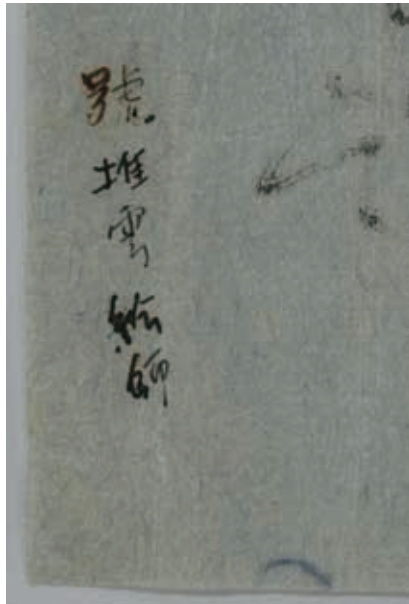 號堆雲絵師